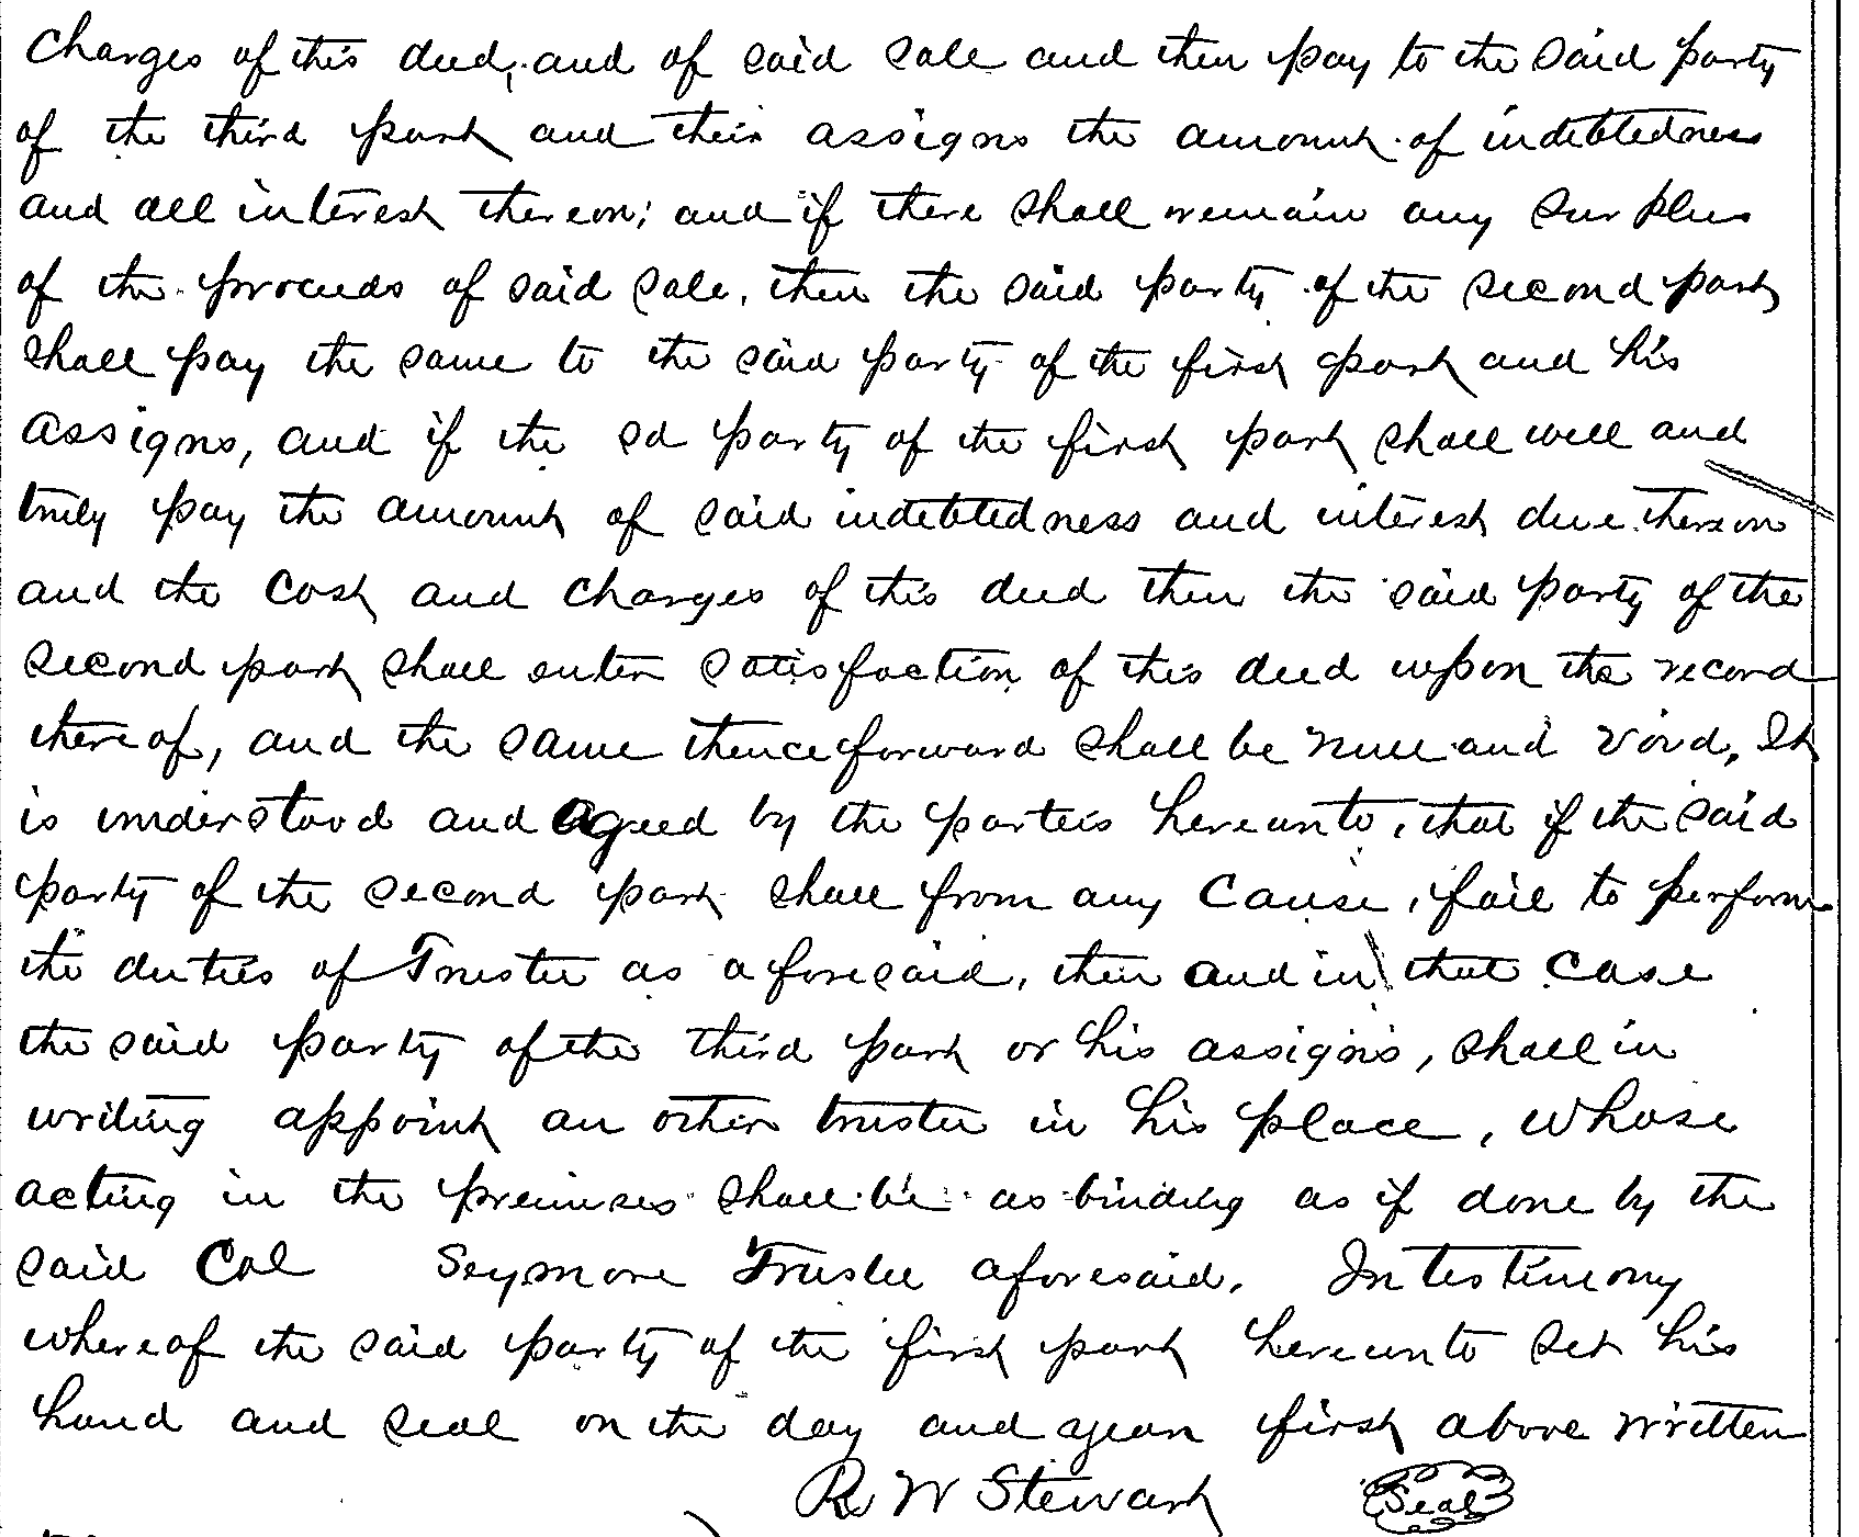 Charges of this deed, and of said sale and then pay to the said party
of the third part and their assigns the amount of indebtedness
and all interest thereon; and if there shall remain any surplus
of the proceeds of said sale, then the said party of the second part
shall pay the same to the said party of the first part and his
assigns, and if the sd party of the first part shall well and
truly pay the amount of said indebtedness and interest due thereon
and the Cost and Charges of this deed then the said party of the
second part shall enter satisfaction of this deed upon the record
thereof, and the same thenceforward shall be null and void, It
is understood and agreed by the parteis hereunto, that if the said
party of the second part shall from any Cause, fail to perform
the duties of Trustee as aforesaid, then and in that Case
the said party of the third part or his assigns, shall in
writing appoint an other trustee in his place, whose
acting in the premises shall be as binding as if done by the
said Cal Seymore Trustee aforesaid. In testimony
whereof the said party of the first part hereunto set his
hand and seal on the day and year first above written
R W Stewart Seal